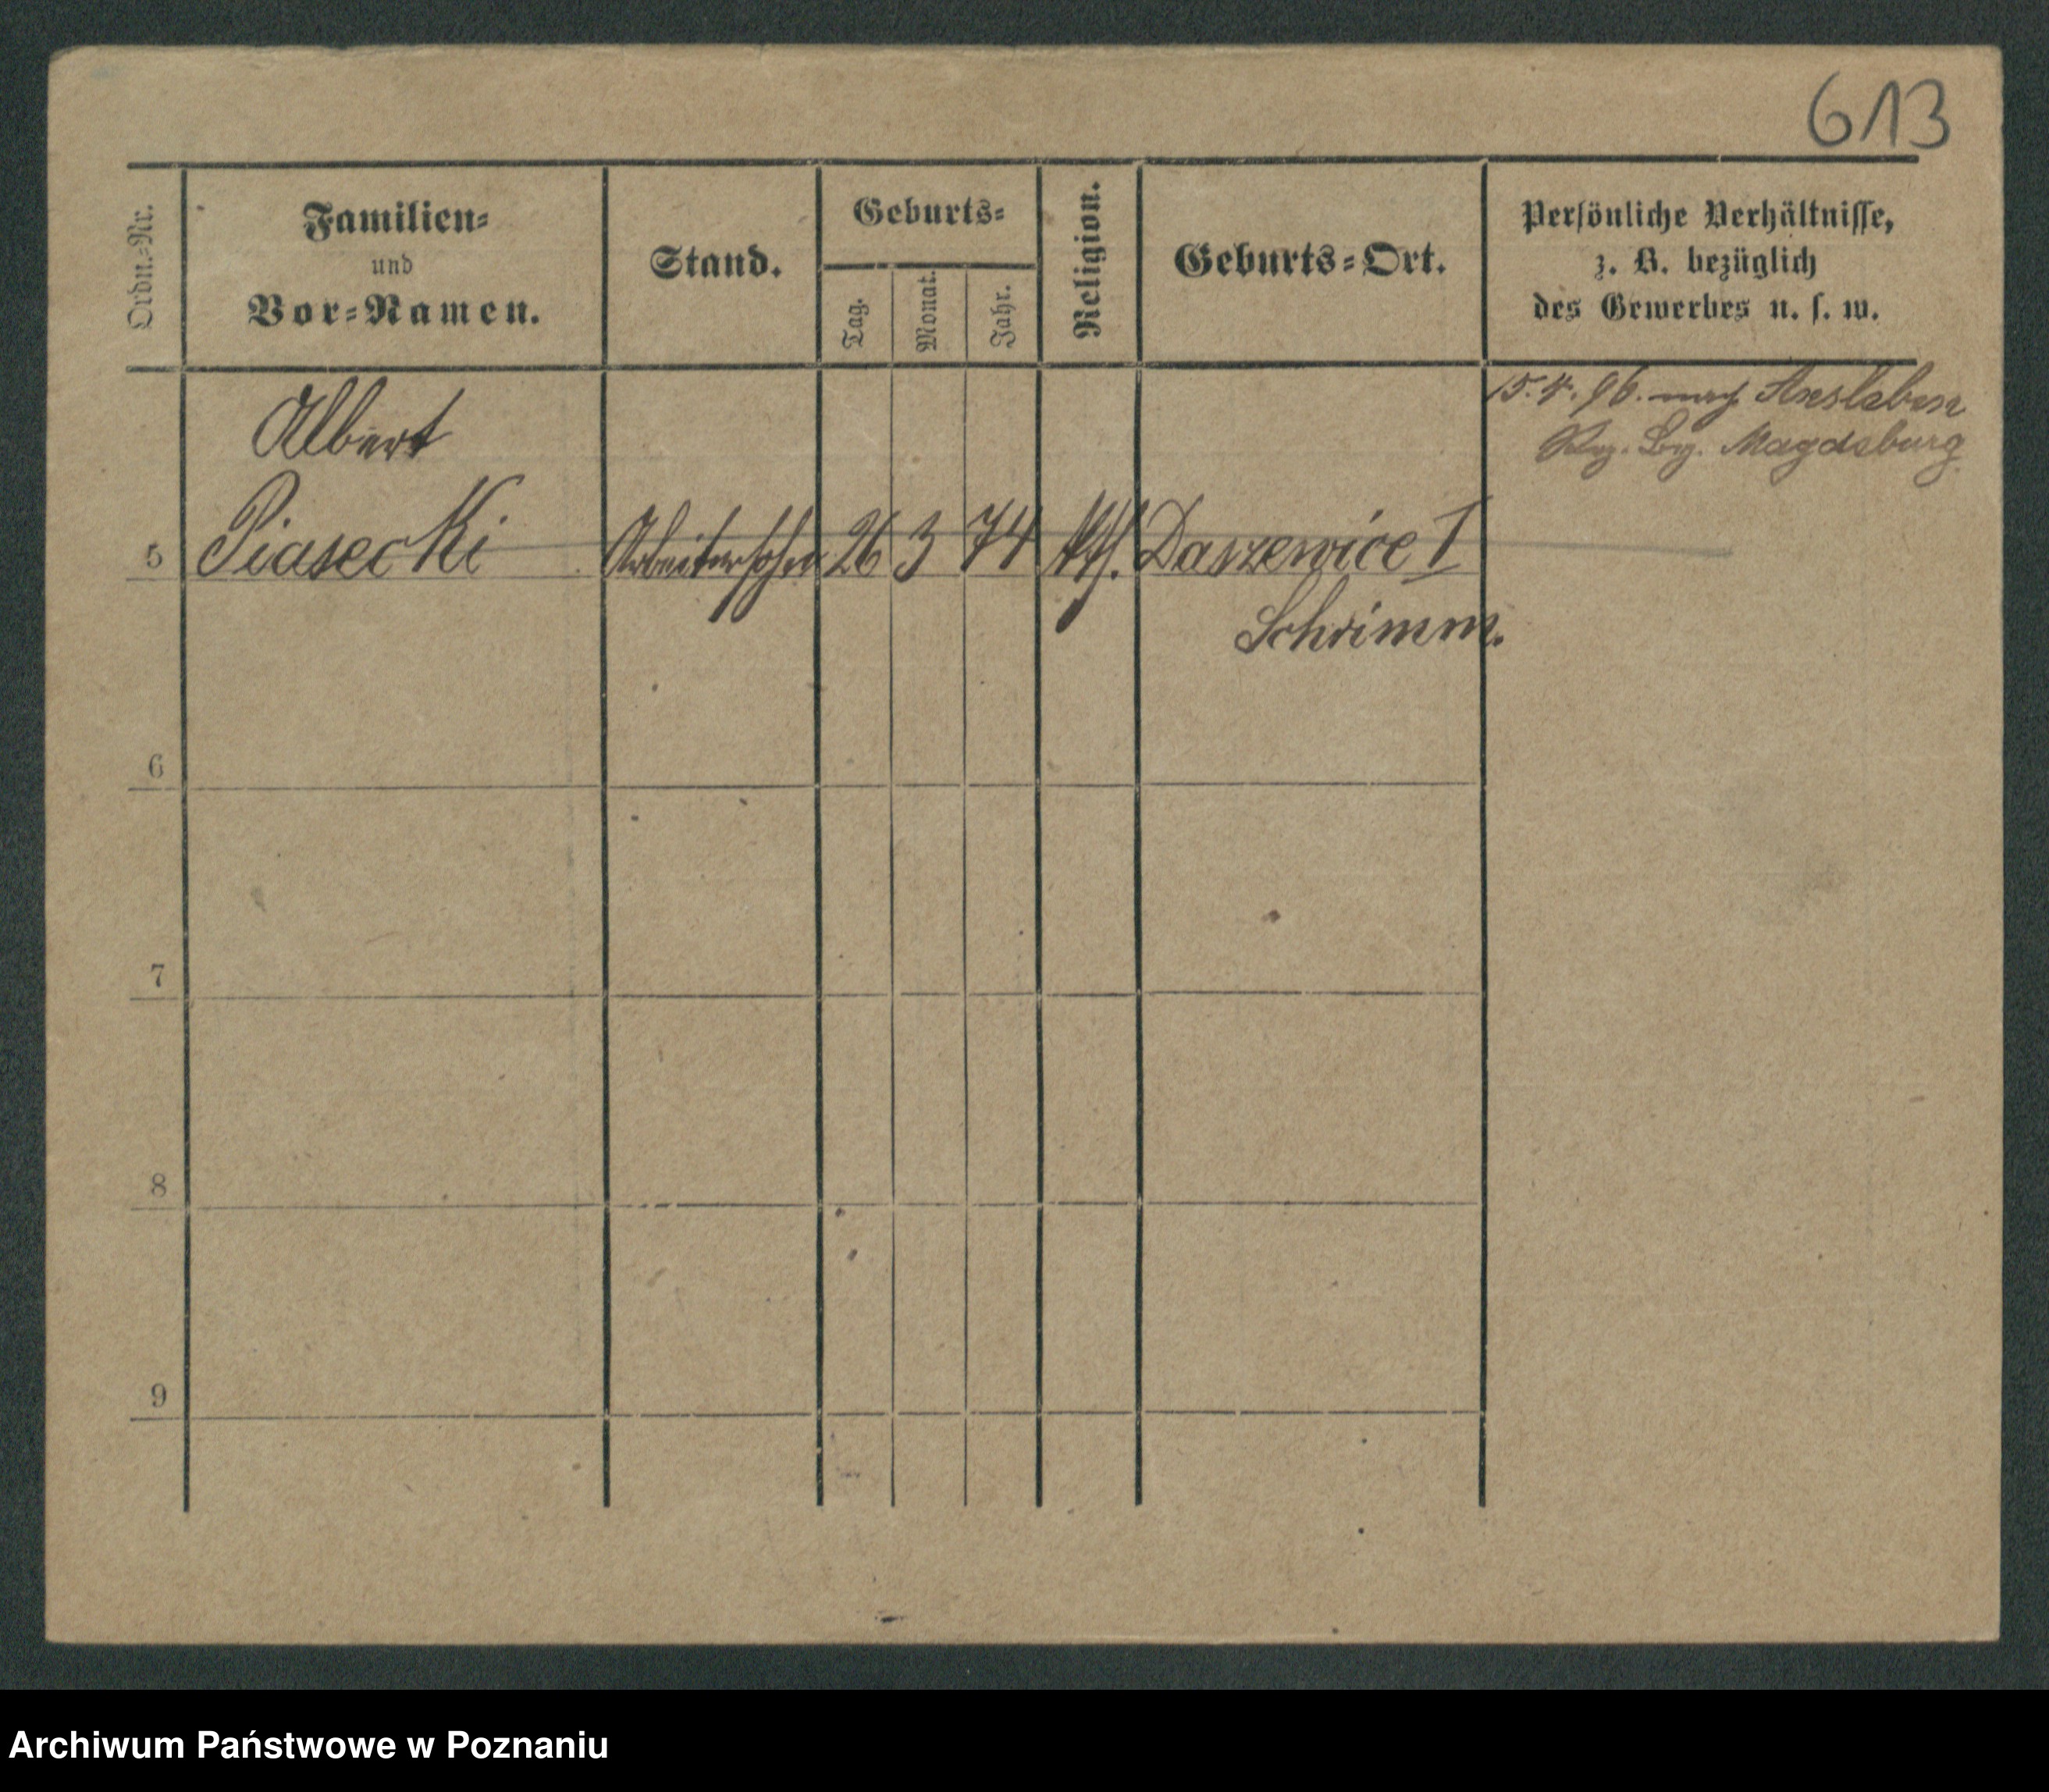 613
Ordn.-Nr.
Familien-
und
Vor-Namen.
Stand.
Geburts-
Tag.
Monat.
Jahr.
Religion.
Geburts-Ort.
Persönliche Verhältnisse,
z. B. bezüglich
des Gewerbes u. s. w.
15.4.96. nach Axsleben
Reg. Bez. Magdeburg
Albert
5 Piasecki Arbeitersohn 26 3 74 kth. Daszewice I
Schrimm.
6
7
8
9
Archiwum Państwowe w Poznaniu